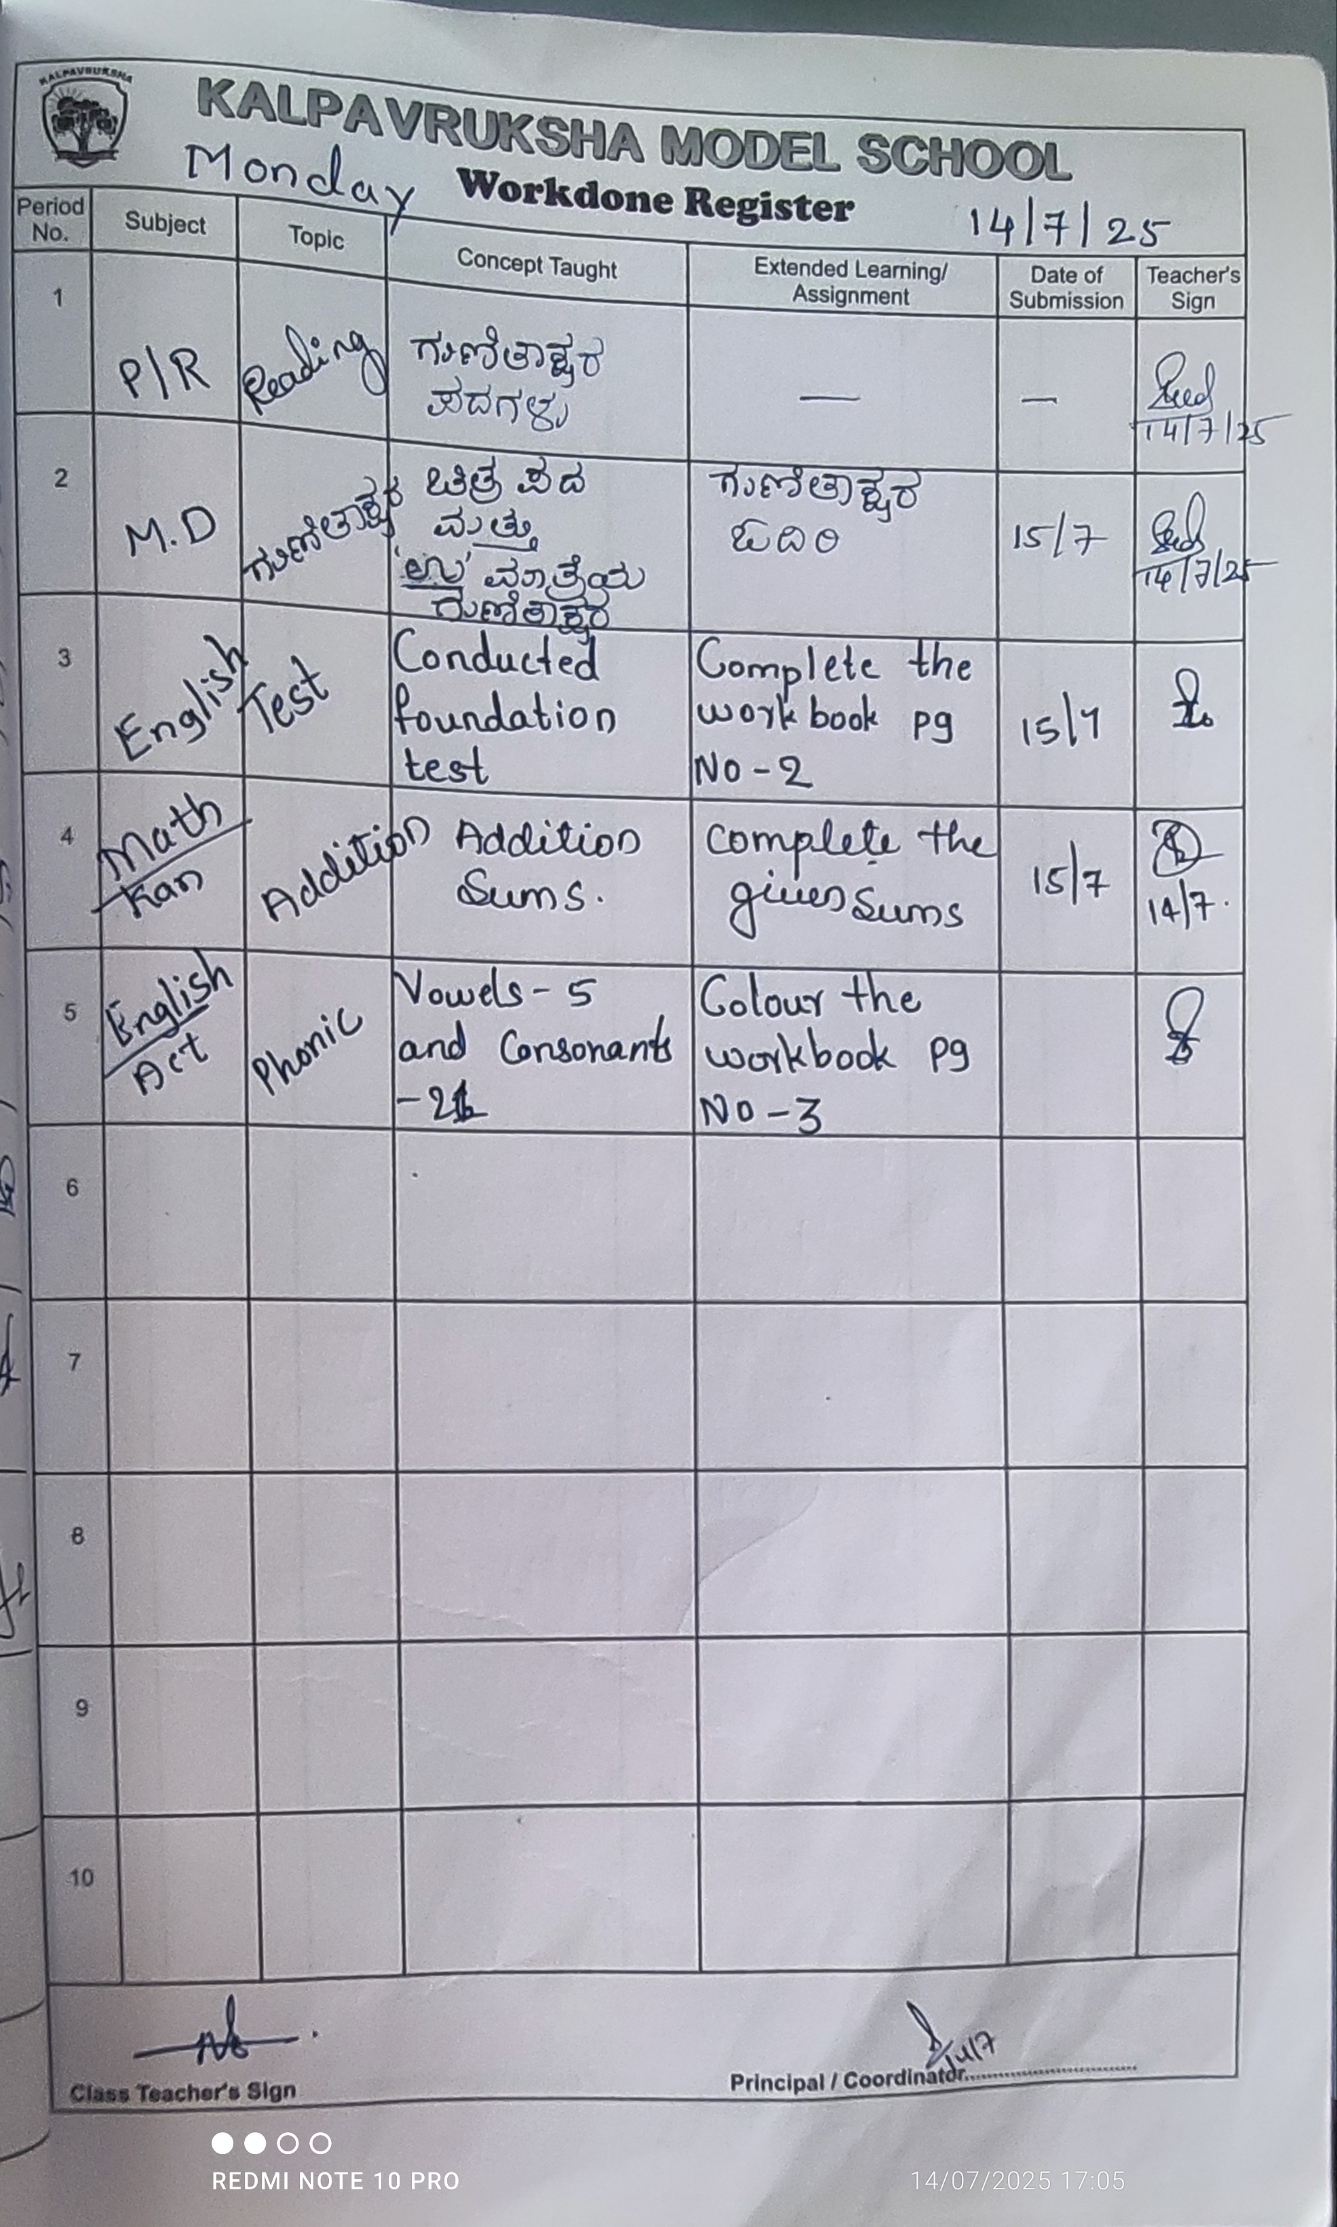 KALPAVRUKSHA
KALPAVRUKSHA MODEL SCHOOL
Monday Workdone Register 14/7/25
Period No. Subject Topic Concept Taught Extended Learning/ Assignment Date of Submission Teacher's Sign
1 P/R Reading ಗುಣಿತಾಕ್ಷರ — —
ಪದಗಳು
14/7/25
2 M.D ಗುಣಿತಾಕ್ಷರ ಚಿತ್ರ ಪದ ಗುಣಿತಾಕ್ಷರ 15/7
ಮತ್ತು ಓದಿರಿ
'ಉ' ಮಾತ್ರೆಯ 14/7/25
ಗುಣಿತಾಕ್ಷರ
3 English Test Conducted Complete the 15/7
foundation work book pg
test No - 2
4 Math Addition Addition Complete the 15/7
Kan Sums. given Sums 14/7.
5 English Phonic Vowels - 5 Colour the
Act and Consonants workbook pg
- 21 No - 3
6
7
8
9
10
14/7
Class Teacher's Sign Principal / Coordinator
REDMI NOTE 10 PRO 14/07/2025 17:05